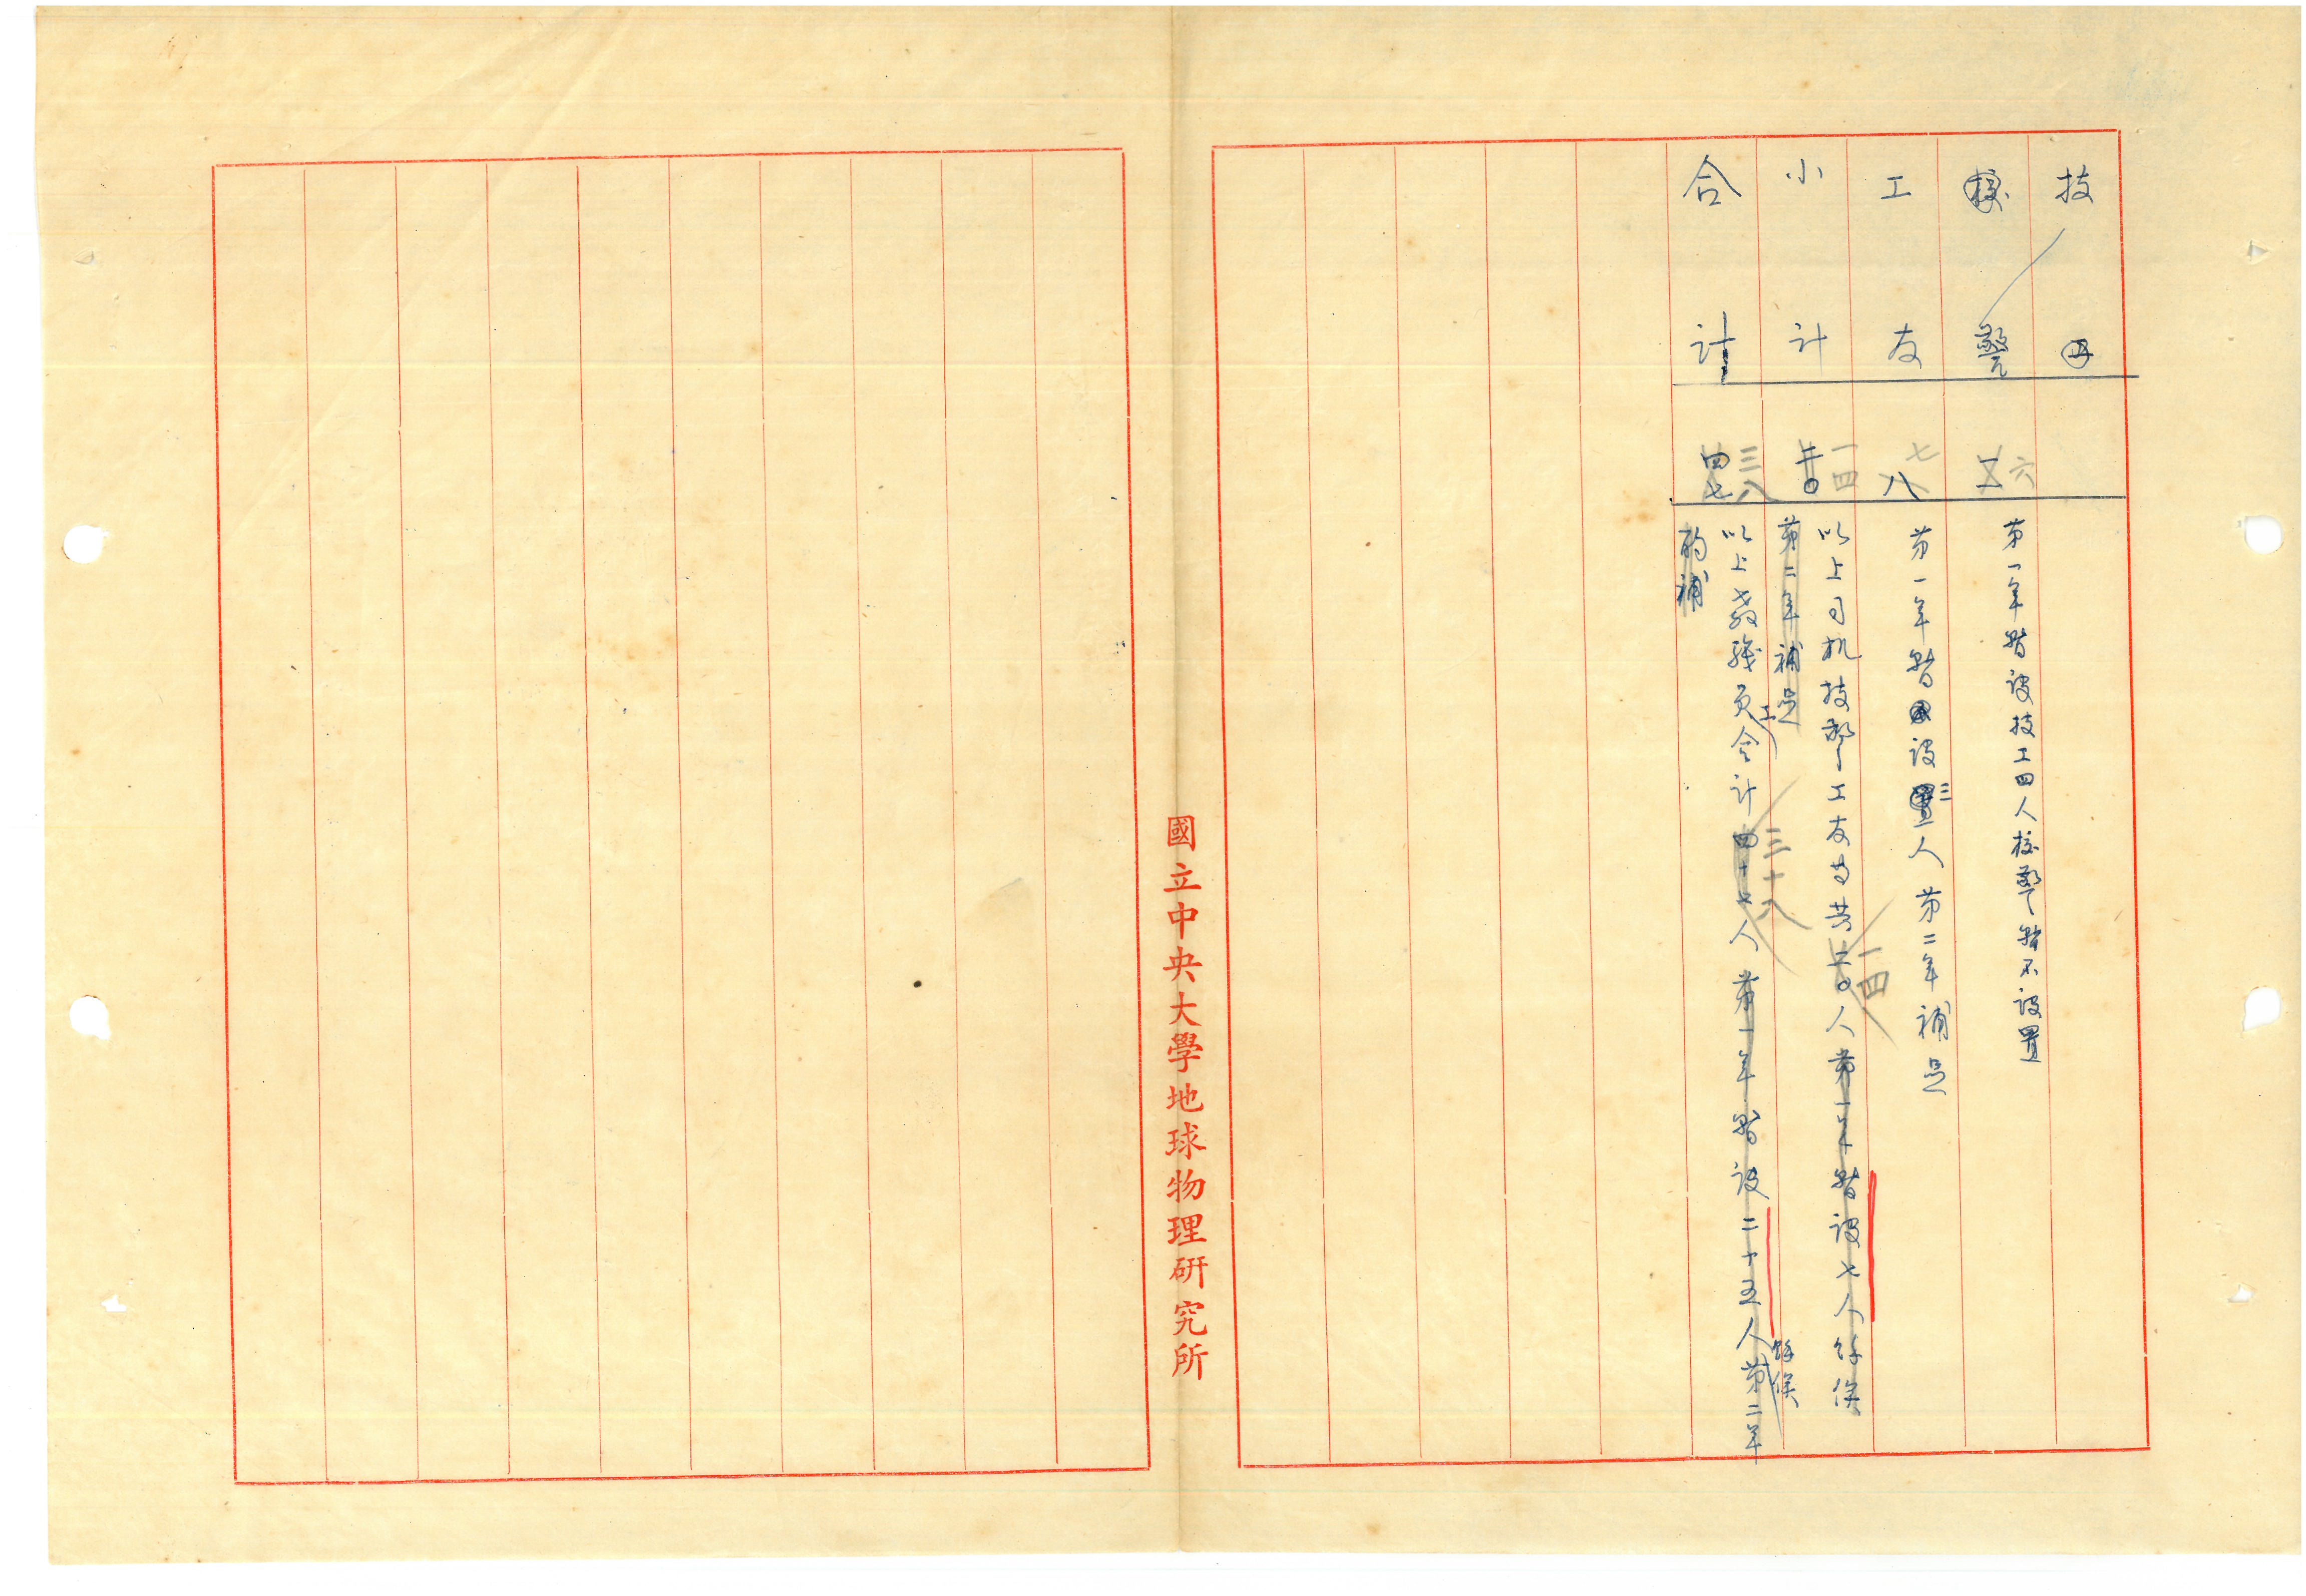 技工
校警 二 六 第一年暫設技工四人校警暫不設置
工友 八 七 第一年暫設置三人第二年補足
小計 二十 一四 以上司机技警工友等共二十人 一四 第一年暫設七人餘俟
第二年補足
合計 四七 三八 以上教職員工合計四十七人 三十八 第一年暫設二十五人餘俟第二年
酌補
國立中央大學地球物理研究所